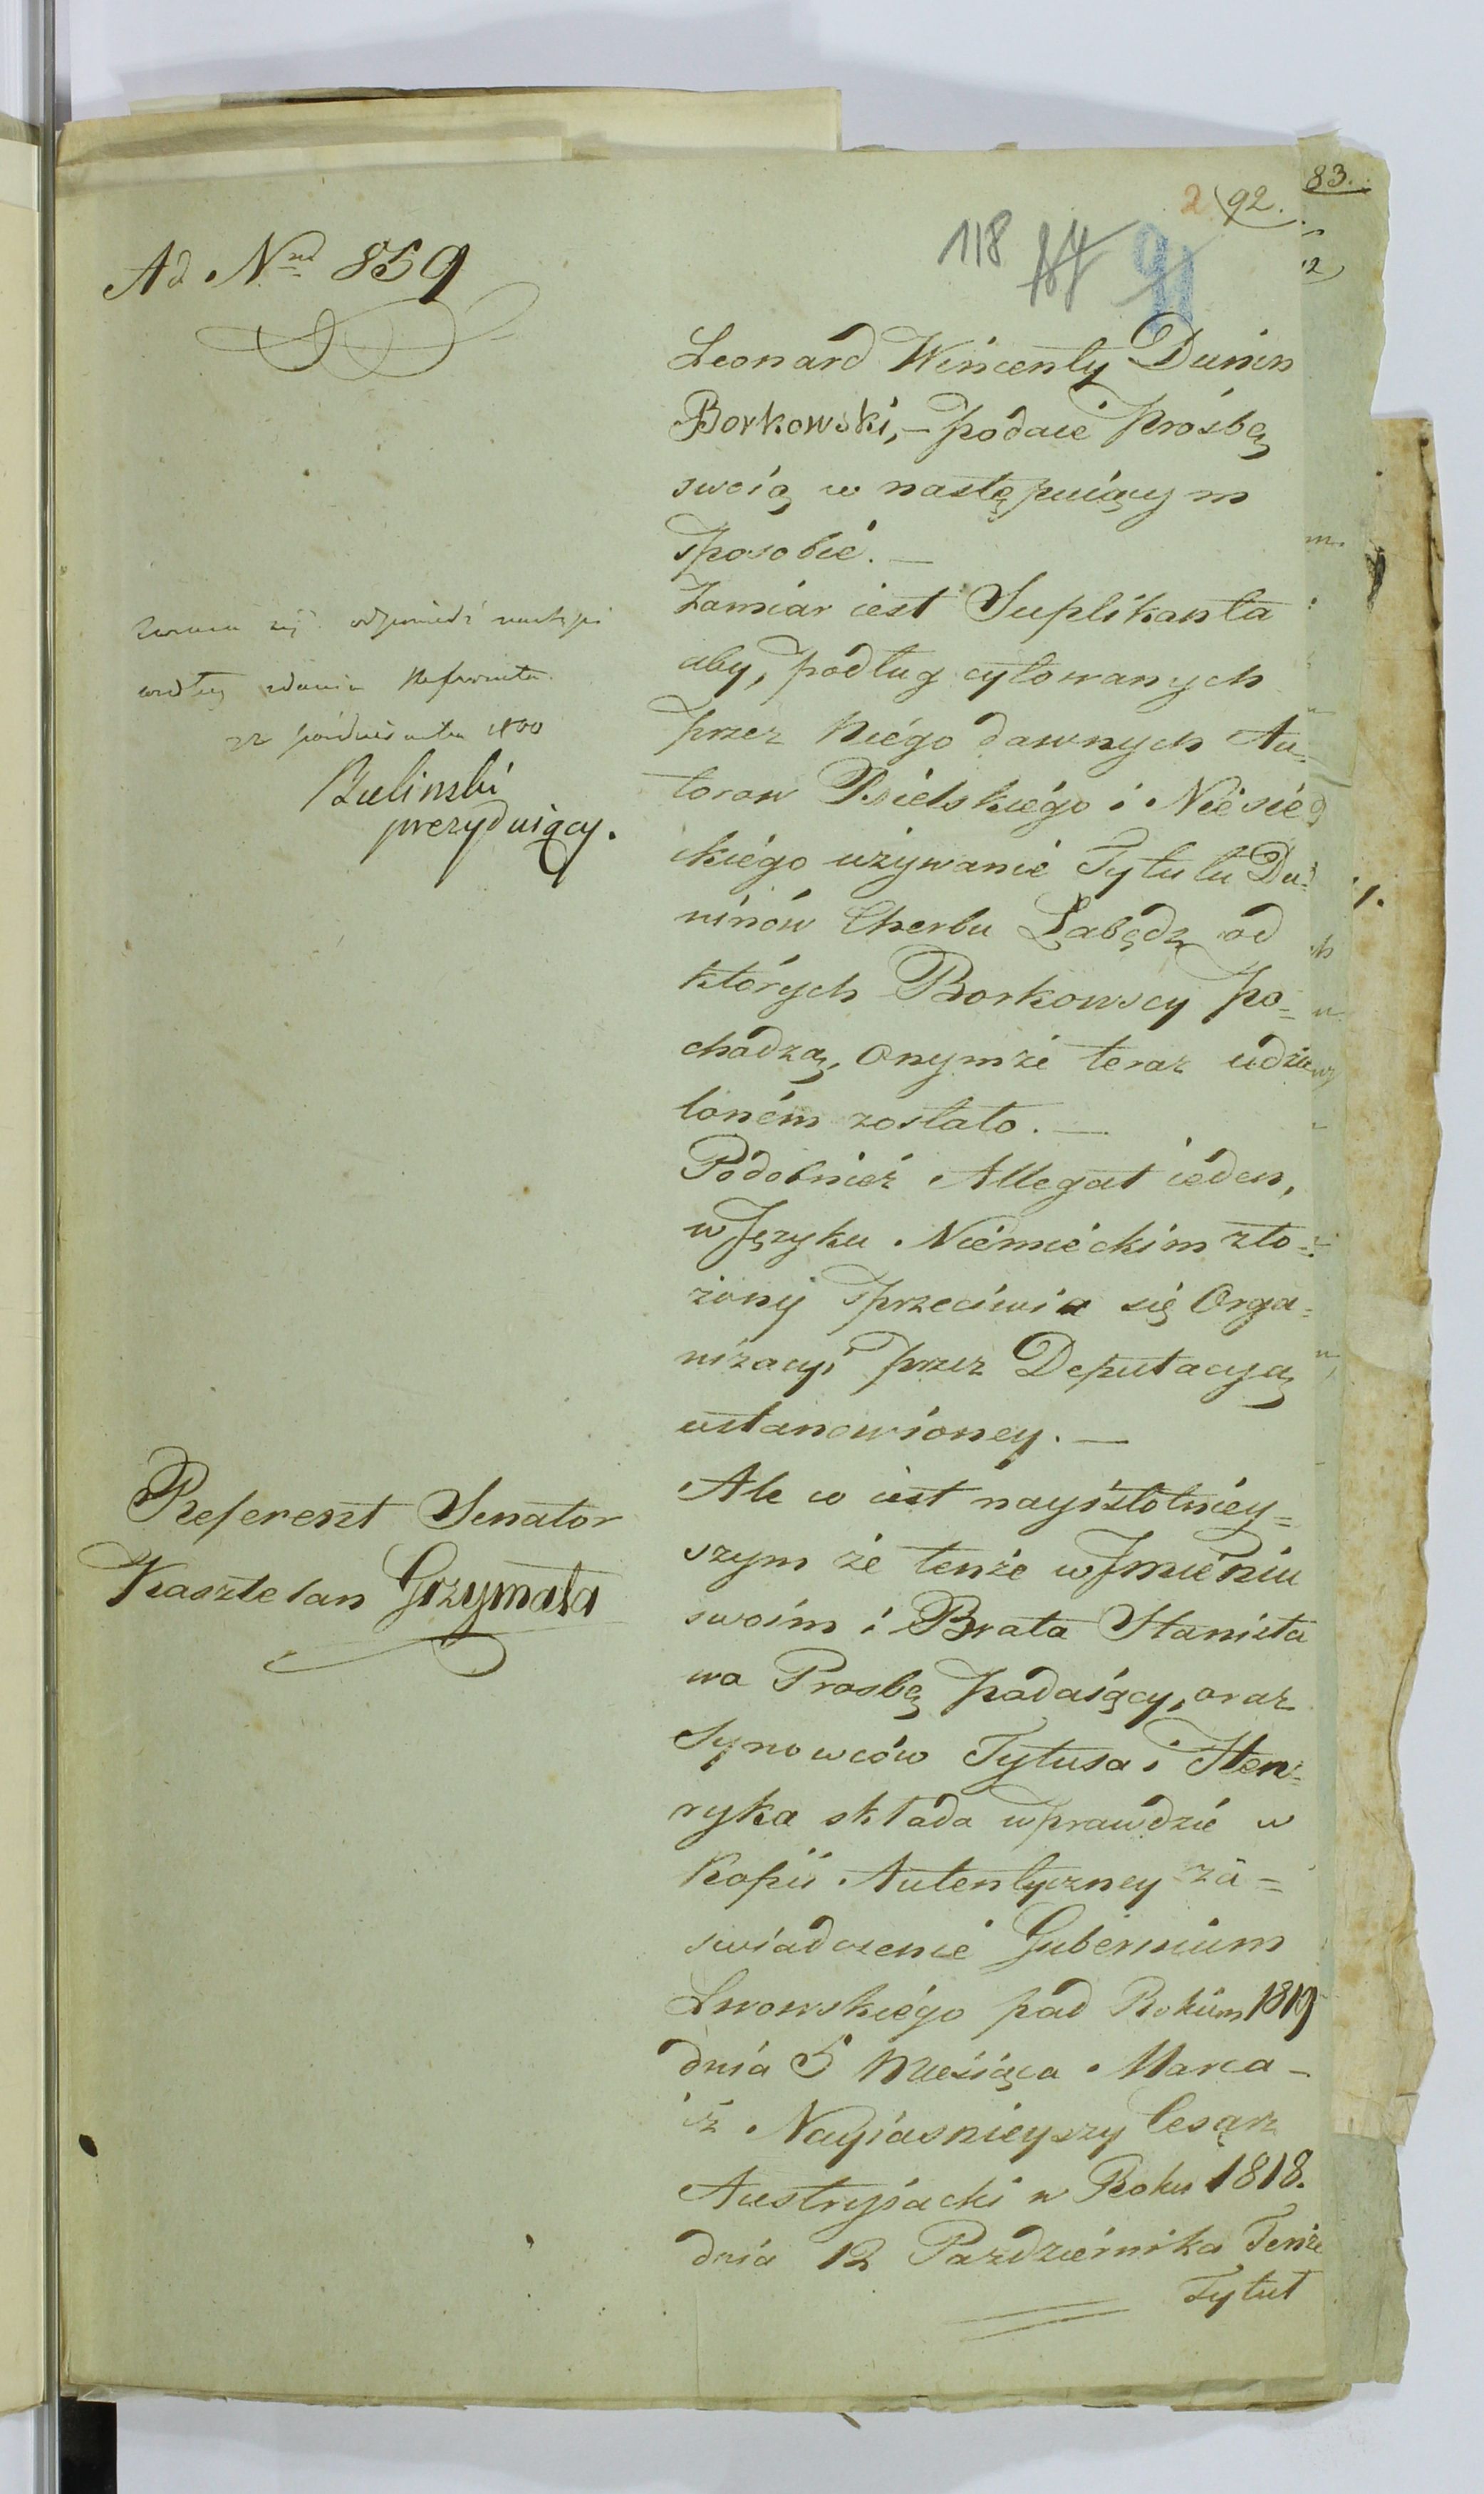 83.
2 92.
118 91
Ad Nrd 859
Leonard Wincenty Dunin
Borkowski, – podaie prośbę
swoią w następuiącym
sposobie. —
Zamiar iest Suplikanta
aby, podług cytowanych
przez niego dawnych Au=
torow Bielskiego i Niesie
ckiego używanie Tytulu Du=
ninów Cherbu Łabędz od
których Borkowscy po=
chodzą, onymże teraz udzie
loném zostało. —
Podobnież Allegat ieden,
w Języku Niemieckim zło=
żony sprzeciwia się Orga=
nizacyi przez Deputacyą
ustanowioney. —
Ale co iest nayistotniey=
szym że tenże w Jmieniu
swoim i Brata Stanisła
wa Prosbę podaiący, oraz
Synowców Tytusa i Hen=
ryka składa wprawdzie w
Kopii Autentyczney za=
swiadczenie Gubernium
Lwowskiego pod Rokiem 1819
dnia 5 Miesiąca Marca –
iż Nayiasnieyszy Cesarz
Austryiacki w Roku 1818.
dnia 12 Pazdziernika Tenże
Tytuł
odpowiedź nastąpi
według zdania Referenta.
22 października
Bielinski
prezyduiący.
Referent Senator
Kasztelan Grzymała